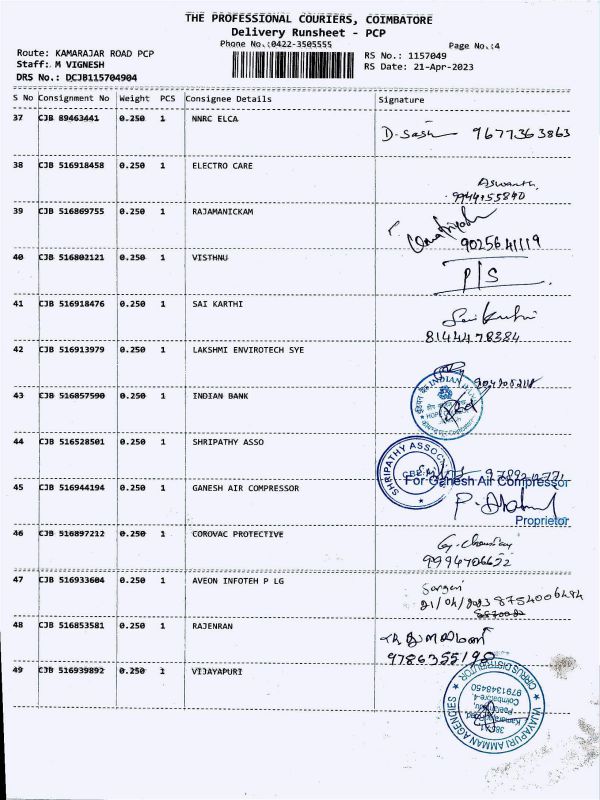 THE PROFESSIONAL COURIERS, COIMBATORE
Delivery Runsheet - PCP
Phone No.:0422-3505555
Page No.:4
Route: KAMARAJAR ROAD PCP
Staff: M VIGNESH
DRS No.: DCJB115704904
RS No.: 1157049
RS Date: 21-Apr-2023
S No Consignment No Weight PCS Consignee Details Signature
37 CJB 89463441 0.250 1 NNRC ELCA
D-Sasi 9677363863
38 CJB 516918458 0.250 1 ELECTRO CARE
Aswanth
9944155840
39 CJB 516869755 0.250 1 RAJAMANICKAM
9025641119
40 CJB 516802121 0.250 1 VISTHNU
P/S
41 CJB 516918476 0.250 1 SAI KARTHI
8144478384
42 CJB 516913979 0.250 1 LAKSHMI ENVIROTECH SYE
43 CJB 516857590 0.250 1 INDIAN BANK
INDIAN
44 CJB 516528501 0.250 1 SHRIPATHY ASSO
SHRIPATHY ASSOC
45 CJB 516944194 0.250 1 GANESH AIR COMPRESSOR
For Ganesh Air Compressor
Proprietor
46 CJB 516897212 0.250 1 COROVAC PROTECTIVE
9994706652
47 CJB 516933604 0.250 1 AVEON INFOTEH P LG
21/04/2023 8754006484
48 CJB 516853581 0.250 1 RAJENRAN
9786355190
49 CJB 516939892 0.250 1 VIJAYAPURI
VIJAYAPURI AMMAN AGENCIES
CIRRUS DISTRIBUTOR
Coimbatore-4.
9791348450